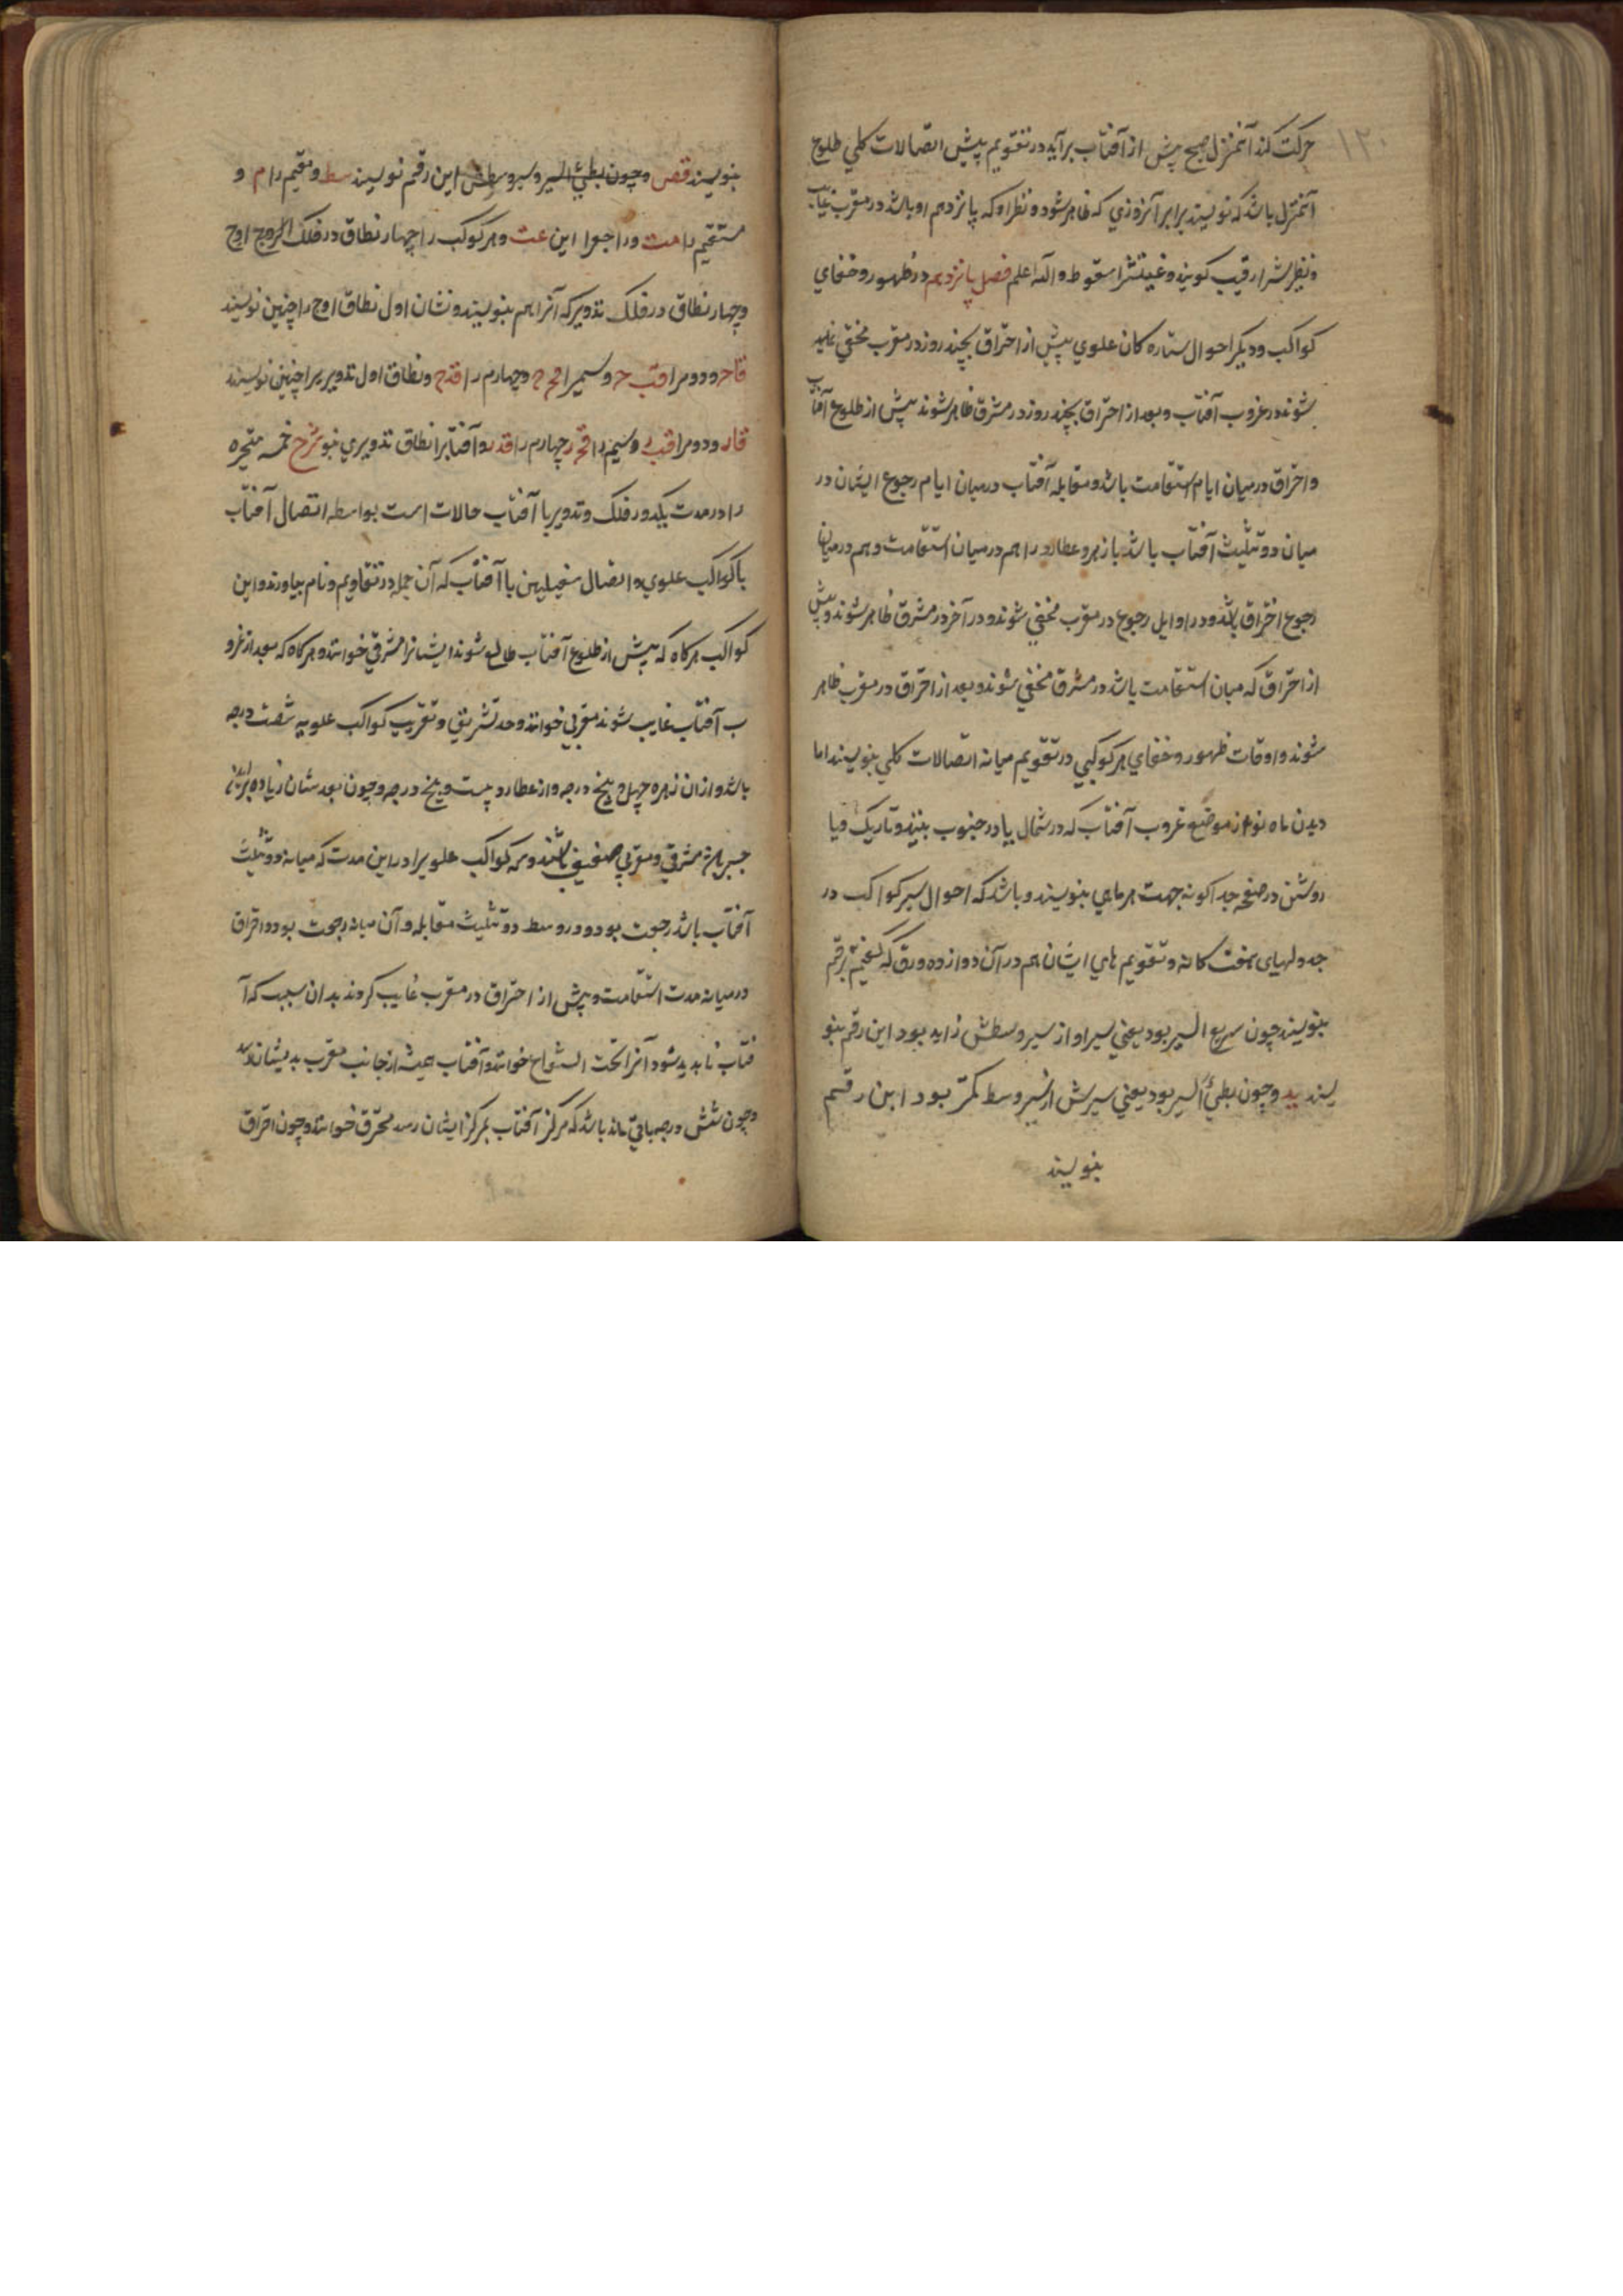 ۱۲۰
حرکت کند آنمنزل صبح پیش از آفتاب برآید در تقویم پیش اتصالات کلي طلوع
آنمنزل باشد که نویسند برابر آنروزي که ظاهر شود و نظر او که پانزدهم او باشد در مغرب غایب
و نظیرش را رقیب کویند و غیبتش را سقوط والله اعلم فصل پانزدهم در ظهور و خفاي
کواکب و دیکر احوال ستاره کان علوي پیش از احتراق بچند روز در مغرب مختفي
شوند در غروب آفتاب و بعد از احتراق بچند روز در مشرق ظاهر شوند پیش از طلوع آفتاب
و احتراق در میان ایام استقامت باشد و مقابله آفتاب در میان ایام رجوع ایشان در
میان دو تثلیث آفتاب باشد باز زهره و عطارد را هم در میان استقامت و هم در میان
رجوع احتراق باشد و در اوایل رجوع در مغرب مختفي شوند و در آخر در مشرق ظاهر شوند و پیش
از احتراق که میان استقامت باشد در مشرق مختفي شوند و بعد از احتراق در مغرب ظاهر
شوند و اوقات ظهور و خفاي هر کوکبي در تقویم میانه اتصالات کلي بنویسند اما
دیدن ماه نو از موضع غروب آفتاب که در شمال یا در جنوب بینند و تاریک و یا
روشن در صفحه جداکونه جهت هر ماهي بنویسند و باشد که احوال سیر کواکب در
جدولهای هفت کانه و تقویم هاي ایشان هم در آن دوازده ورق که کفتیم برقم
بنویسند چون سریع السیر بود یعني سیر او از سیر وسطش زاید بود این رقم بنو
یسند ید و چون بطئ السیر بود یعني سیرش از سیر وسط کمتر بود این رقم
بنویسند
بنویسند قص و چون بطئ السیر و سیر وسطش این رقم نویسند سط و مقیم را م و
مستقیم را مت و راجع را این عت و هر کوکب را چهار نطاق در فلک البروج اوج
و چهار نطاق در فلک تدویر که آنرا هم بنویسند و نشان اول نطاق اوج را چنین نویسند
قاح و دوم را قب ح و سیم را قج ح و چهارم را قدح و نطاق اول تدویر را چنین نویسند
قار و دوم را قب ر و سیم را قج ر چهارم را قدر و آفتاب را نطاق تدویري نبود شرح خمسه متحیره
را در مدت یکدور فلک و تدویر با آفتاب حالات است بواسطه اتصال آفتاب
با کواکب علوي و اتصال سفلیین با آفتاب که آن جمله در تقاویم و نام بیاورند و این
کواکب هرکاه که پیش از طلوع آفتاب طالع شوند ایشانرا مشرقي خوانند و هرکاه که بعد از غرو
ب آفتاب غایب شوند مغربي خوانند و حد تشریق و تغریب کواکب علویه شصت درجه
باشد و از ان زهره چهل و پنج درجه و از عطارد بیست و پنج درجه و چون بعدشان زیاده
مشرقي و مغربي ضعیف باشند و سه کواکب علویرا در این مدت که میانه دو تثلیث
آفتاب باشد رجعت بود و در وسط دو تثلیث مقابله و آن میانه رجعت بود و احتراق
در میانه مدت استقامت و پیش از احتراق در مغرب غایب کردند بدان سبب که آ
فتاب ناپدید شود آنرا تحت الشعاع خوانند و آفتاب همیشه از جانب مغرب بدیشان رسد
و چون شش درجه باقي مانده باشد که مرکز آفتاب بمرکز ایشان رسد محترق خوانند و چون احتراق